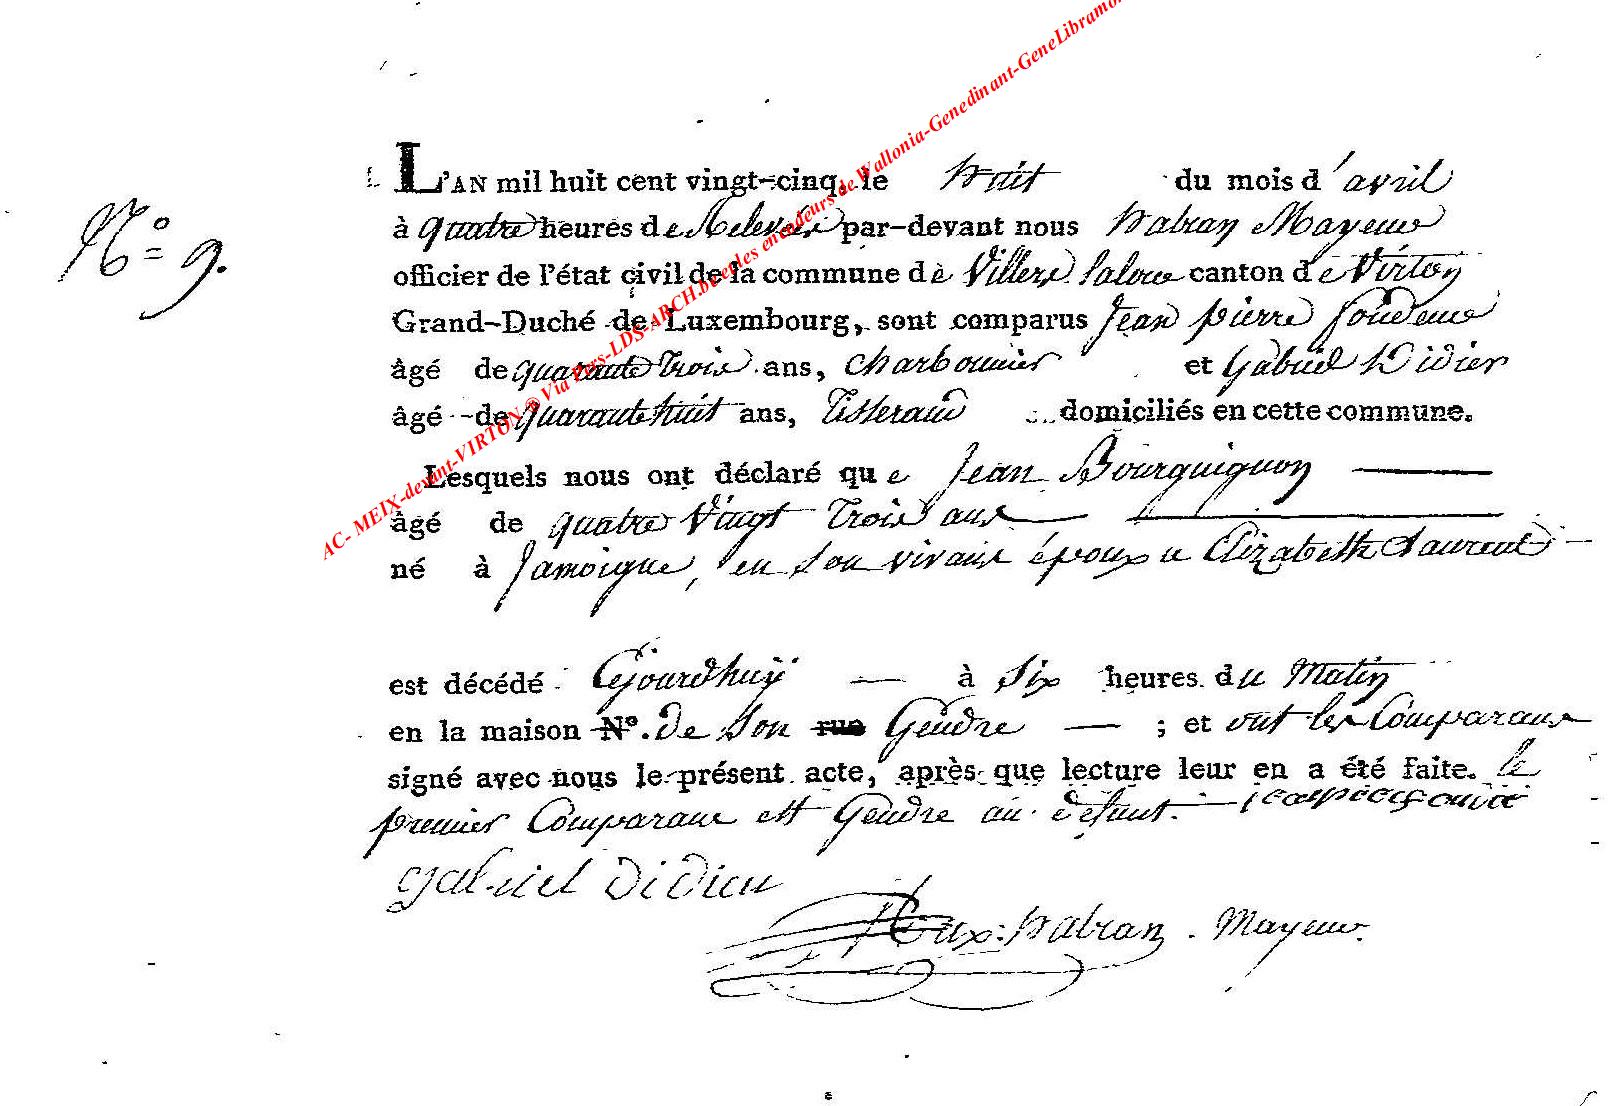 AC- MEIX-devant-VIRTON ® Via Pers-LDS-ARCH.be et les encodeurs de Wallonia-Genedinant-GeneLibramo
N° 9.
L'AN mil huit cent vingt-cinq, le huit du mois d'avril
à quatre heures de Relevée par-devant nous habran Mayeur
officier de l'état civil de la commune de Villers Laloue canton de Virton
Grand-Duché de Luxembourg, sont comparus Jean pierre
âgé de quarante Trois ans, charbonnier et Gabriel Didier
âgé de quarante huit ans, Tisserand domiciliés en cette commune.
Lesquels nous ont déclaré que Jean Bourguignon
âgé de quatre Vingt Trois ans
né à Jamoigne, en son vivant époux a Elizabeth Laurent
est décédé Cejourdhuÿ à six heures du Matin
en la maison N°. de son rue Gendre ; et ont les Comparans
signé avec nous le présent acte, après que lecture leur en a été faite. le
premier Comparant est Gendre au défunt.
gabriel didier
habran. Mayeur.